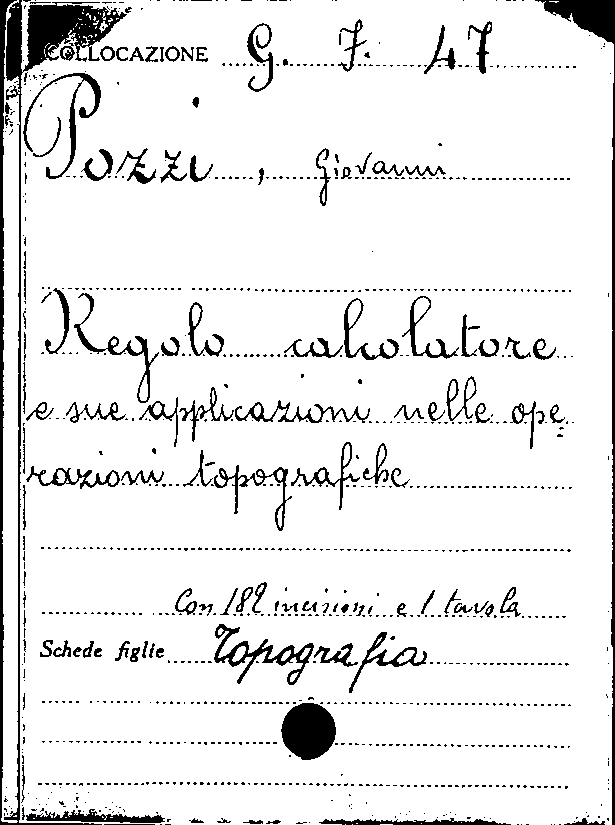 COLLOCAZIONE G. 7. 47
Pozzi, Giovanni
Regolo calcolatore
e sue applicazioni nelle ope=
razioni topografiche
Con 182 incisioni e 1 tavola
Schede figlie Topografia